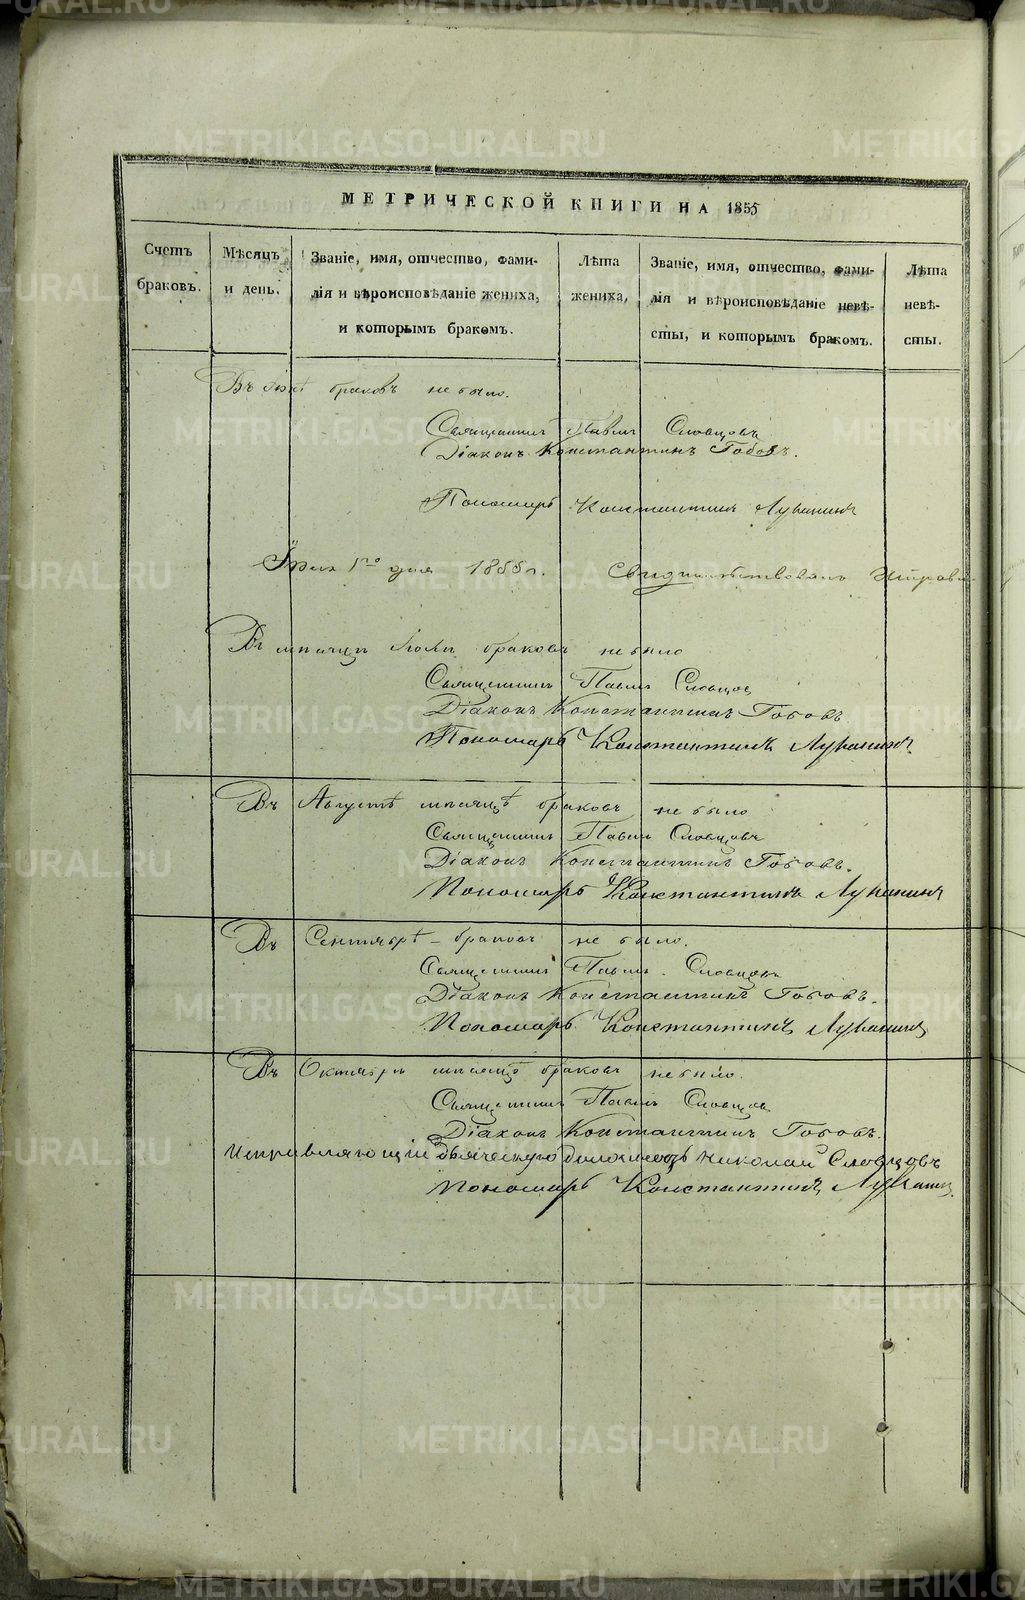 МЕТРИЧЕСКОЙ КНИГИ НА 1855
Счетъ браковъ.
Мѣсяцъ и день.
Званіе, имя, отчество, фами-
лія и вѣроисповѣданіе жениха,
и которымъ бракомъ.
Лѣта жениха,
Званіе, имя, отчество, фами-
лія и вѣроисповѣданіе невѣ-
сты, и которымъ бракомъ.
Лѣта невѣ-
сты.
Въ браковъ не было.
Священникъ Павелъ Словцовъ
Діаконъ Константинъ Гобовъ.
Пономарь Константинъ Луканинъ
1го дня 1855 г. Свидѣтельствовалъ
Въ мѣсяцѣ Іюлѣ браковъ не было
Священникъ Павелъ Словцов
Діаконъ Константинъ Гобовъ.
Пономарь Константинъ Луканинъ.
Въ Августѣ мѣсяцѣ браковъ не было
Священникъ Павелъ Словцовъ
Діаконъ Константинъ Гобовъ.
Пономарь Константинъ Луканинъ
Въ Сентябрѣ - браковъ не было.
Священникъ Павелъ Словцовъ
Діаконъ Константинъ Гобовъ.
Пономарь Константинъ Луканинъ
Въ Октябрѣ мѣсяцѣ браковъ не было.
Священникъ Павелъ Словцовъ
Діаконъ Константинъ Гобовъ.
Исправляющій дьяческую должность Николай Словцовъ
Пономарь Константинъ Луканинъ.
METRIKI.GASO-URAL.RU